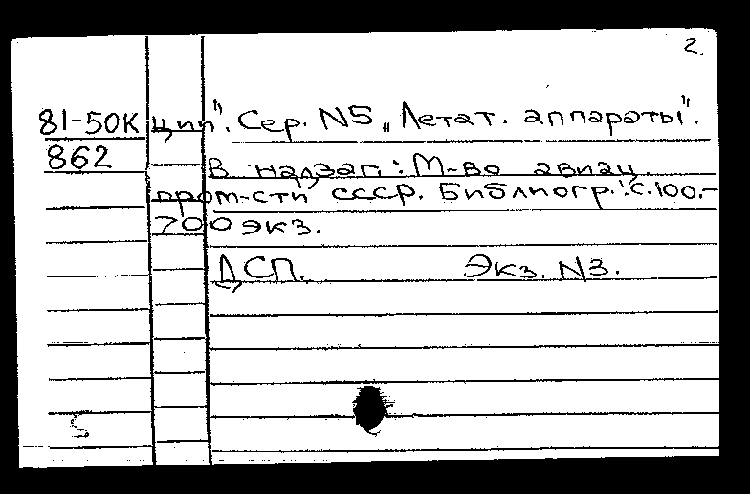 2.
81-50К ции". Сер. N5 „Летат. аппараты".
862
В надзаг: М-во авиац.
пром-сти СССР. Библиогр.: с.100.-
700 экз.
ДСП. Экз. N3.
5